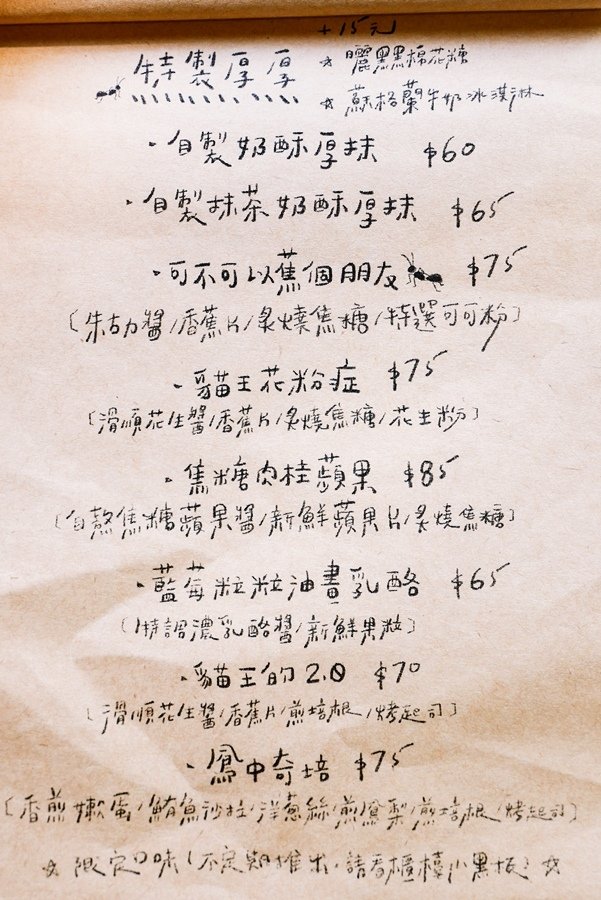 +15元
特製厚厚
☆ 曬黑黑棉花糖
☆ 蘇格蘭牛奶冰淇淋
·自製奶酥厚抹 $60
·自製抹茶奶酥厚抹 $65
·可不可以蕉個朋友 $75
〔朱古力醬/香蕉片/炙燒焦糖/特選可可粉〕
·貓王花粉症 $75
〔滑順花生醬/香蕉片/炙燒焦糖/花生粉〕
·焦糖肉桂蘋果 $85
〔自熬焦糖蘋果醬/新鮮蘋果片/炙燒焦糖〕
·藍莓粒粒油畫乳酪 $65
〔特調濃乳酪醬/新鮮果粒〕
·貓王的2.0 $70
〔滑順花生醬/香蕉片/煎培根/烤起司〕
·鳳中奇培 $75
〔香煎嫩蛋/鮪魚沙拉/洋蔥絲/煎鳳梨/煎培根/烤起司〕
☆ 限定口味(不定期推出,請看櫃檯小黑板) ☆